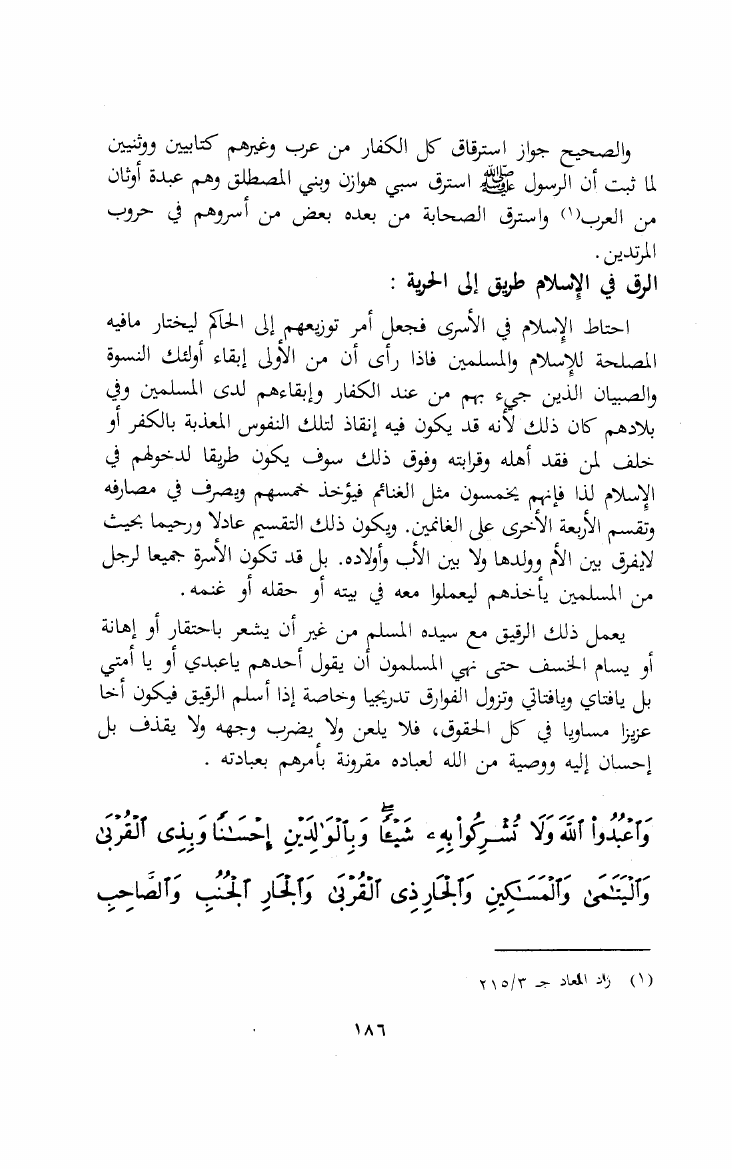 والصحيح جواز استرقاق كل الكفار من عرب وغيرهم كتابيين ووثنيين
لما ثبت أن الرسول ﷺ استرق سبي هوازن وبني المصطلق وهم عبدة أوثان
من العرب(١) واسترق الصحابة من بعده بعض من أسروهم في حروب
المرتدين .
الرق في الإسلام طريق إلى الحرية :
احتاط الإسلام في الأسرى فجعل أمر توزيعهم إلى الحاكم ليختار مافيه
المصلحة للإسلام والمسلمين فاذا رأى أن من الأولى إبقاء أولئك النسوة
والصبيان الذين جيء بهم من عند الكفار وإبقاءهم لدى المسلمين وفي
بلادهم كان ذلك لأنه قد يكون فيه إنقاذ لتلك النفوس المعذبة بالكفر أو
خلف لمن فقد أهله وقرابته وفوق ذلك سوف يكون طريقا لدخولهم في
الإسلام لذا فإنهم يخمسون مثل الغنائم فيؤخذ خمسهم ويصرف في مصارفه
وتقسم الأربعة الأخرى على الغانمين. ويكون ذلك التقسيم عادلا ورحيما بحيث
لايفرق بين الأم وولدها ولا بين الأب وأولاده. بل قد تكون الأسرة جميعا لرجل
من المسلمين يأخذهم ليعملوا معه في بيته أو حقله أو غنمه .
يعمل ذلك الرقيق مع سيده المسلم من غير أن يشعر باحتقار أو إهانة
أو يسام الخسف حتى نهي المسلمون أن يقول أحدهم ياعبدي أو يا أمتي
بل يافتاي ويافتاتي وتزول الفوارق تدريجيا وخاصة إذا أسلم الرقيق فيكون أخا
عزيزا مساويا في كل الحقوق، فلا يلعن ولا يضرب وجهه ولا يقذف بل
إحسان إليه ووصية من الله لعباده مقرونة بأمرهم بعبادته .
وَٱعْبُدُوا۟ ٱللَّهَ وَلَا تُشْرِكُوا۟ بِهِۦ شَيْـًٔا ۖ وَبِٱلْوَٰلِدَيْنِ إِحْسَـٰنًا وَبِذِى ٱلْقُرْبَىٰ
وَٱلْيَتَـٰمَىٰ وَٱلْمَسَـٰكِينِ وَٱلْجَارِ ذِى ٱلْقُرْبَىٰ وَٱلْجَارِ ٱلْجُنُبِ وَٱلصَّاحِبِ
(١) زاد المعاد جـ ٢١٥/٣
١٨٦